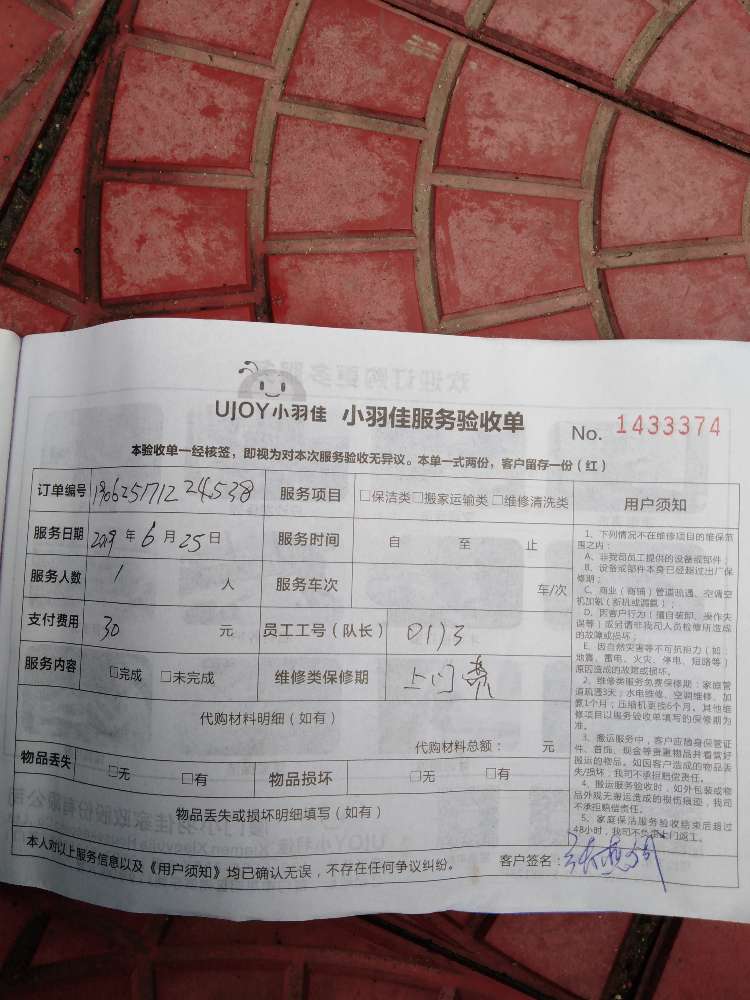 UJOY小羽佳 小羽佳服务验收单 No. 1433374
本验收单一经核签，即视为对本次服务验收无异议。本单一式两份，客户留存一份（红）
订单编号 19062517122 24538 服务项目 □保洁类□搬家运输类□维修清洗类
服务日期 2019 年 6 月 25 日 服务时间 自 至 止
服务人数 1 人 服务车次 车/次
支付费用 30 元 员工工号（队长） 0113
服务内容 □完成 □未完成 维修类保修期 上门
代购材料明细（如有）
代购材料总额： 元
物品丢失 □无 □有 物品损坏 □无 □有
物品丢失或损坏明细填写（如有）
本人对以上服务信息以及《用户须知》均已确认无误，不存在任何争议纠纷。 客户签名：
用户须知
1、下列情况不在维修项目的维保范
围之内：
A、非我司员工提供的设备或部件；
B、设备或部件本身已经超过出厂保
修期；
C、商业（商铺）管道疏通、空调空
机加氟（新机或漏氟）；
D、因客户行为（擅自装卸、操作失
误等）或另请非我司人员检修所造成
的故障或损坏；
E、因自然灾害等不可抗拒力（如：
地震、雷电、火灾、停电、短路等）
原因造成的故障或损坏。
2、维修类服务免费保修期：家庭管
道疏通3天；水电维修、空调维修、加
氨1个月；压缩机更换6个月。其他维
修项目以服务验收单填写的保修期为
准。
3、搬运服务中，客户应随身保管证
件、首饰、现金等贵重物品并看管好
搬运的物品。如因客户造成的物品丢
失/损坏，我司不承担赔偿责任。
4、搬运服务验收时，如外包装或物
品外观无搬运造成的损伤痕迹，我司
不承担赔偿责任。
5、家庭保洁服务验收结束后超过
48小时，我司不负责上门返工。